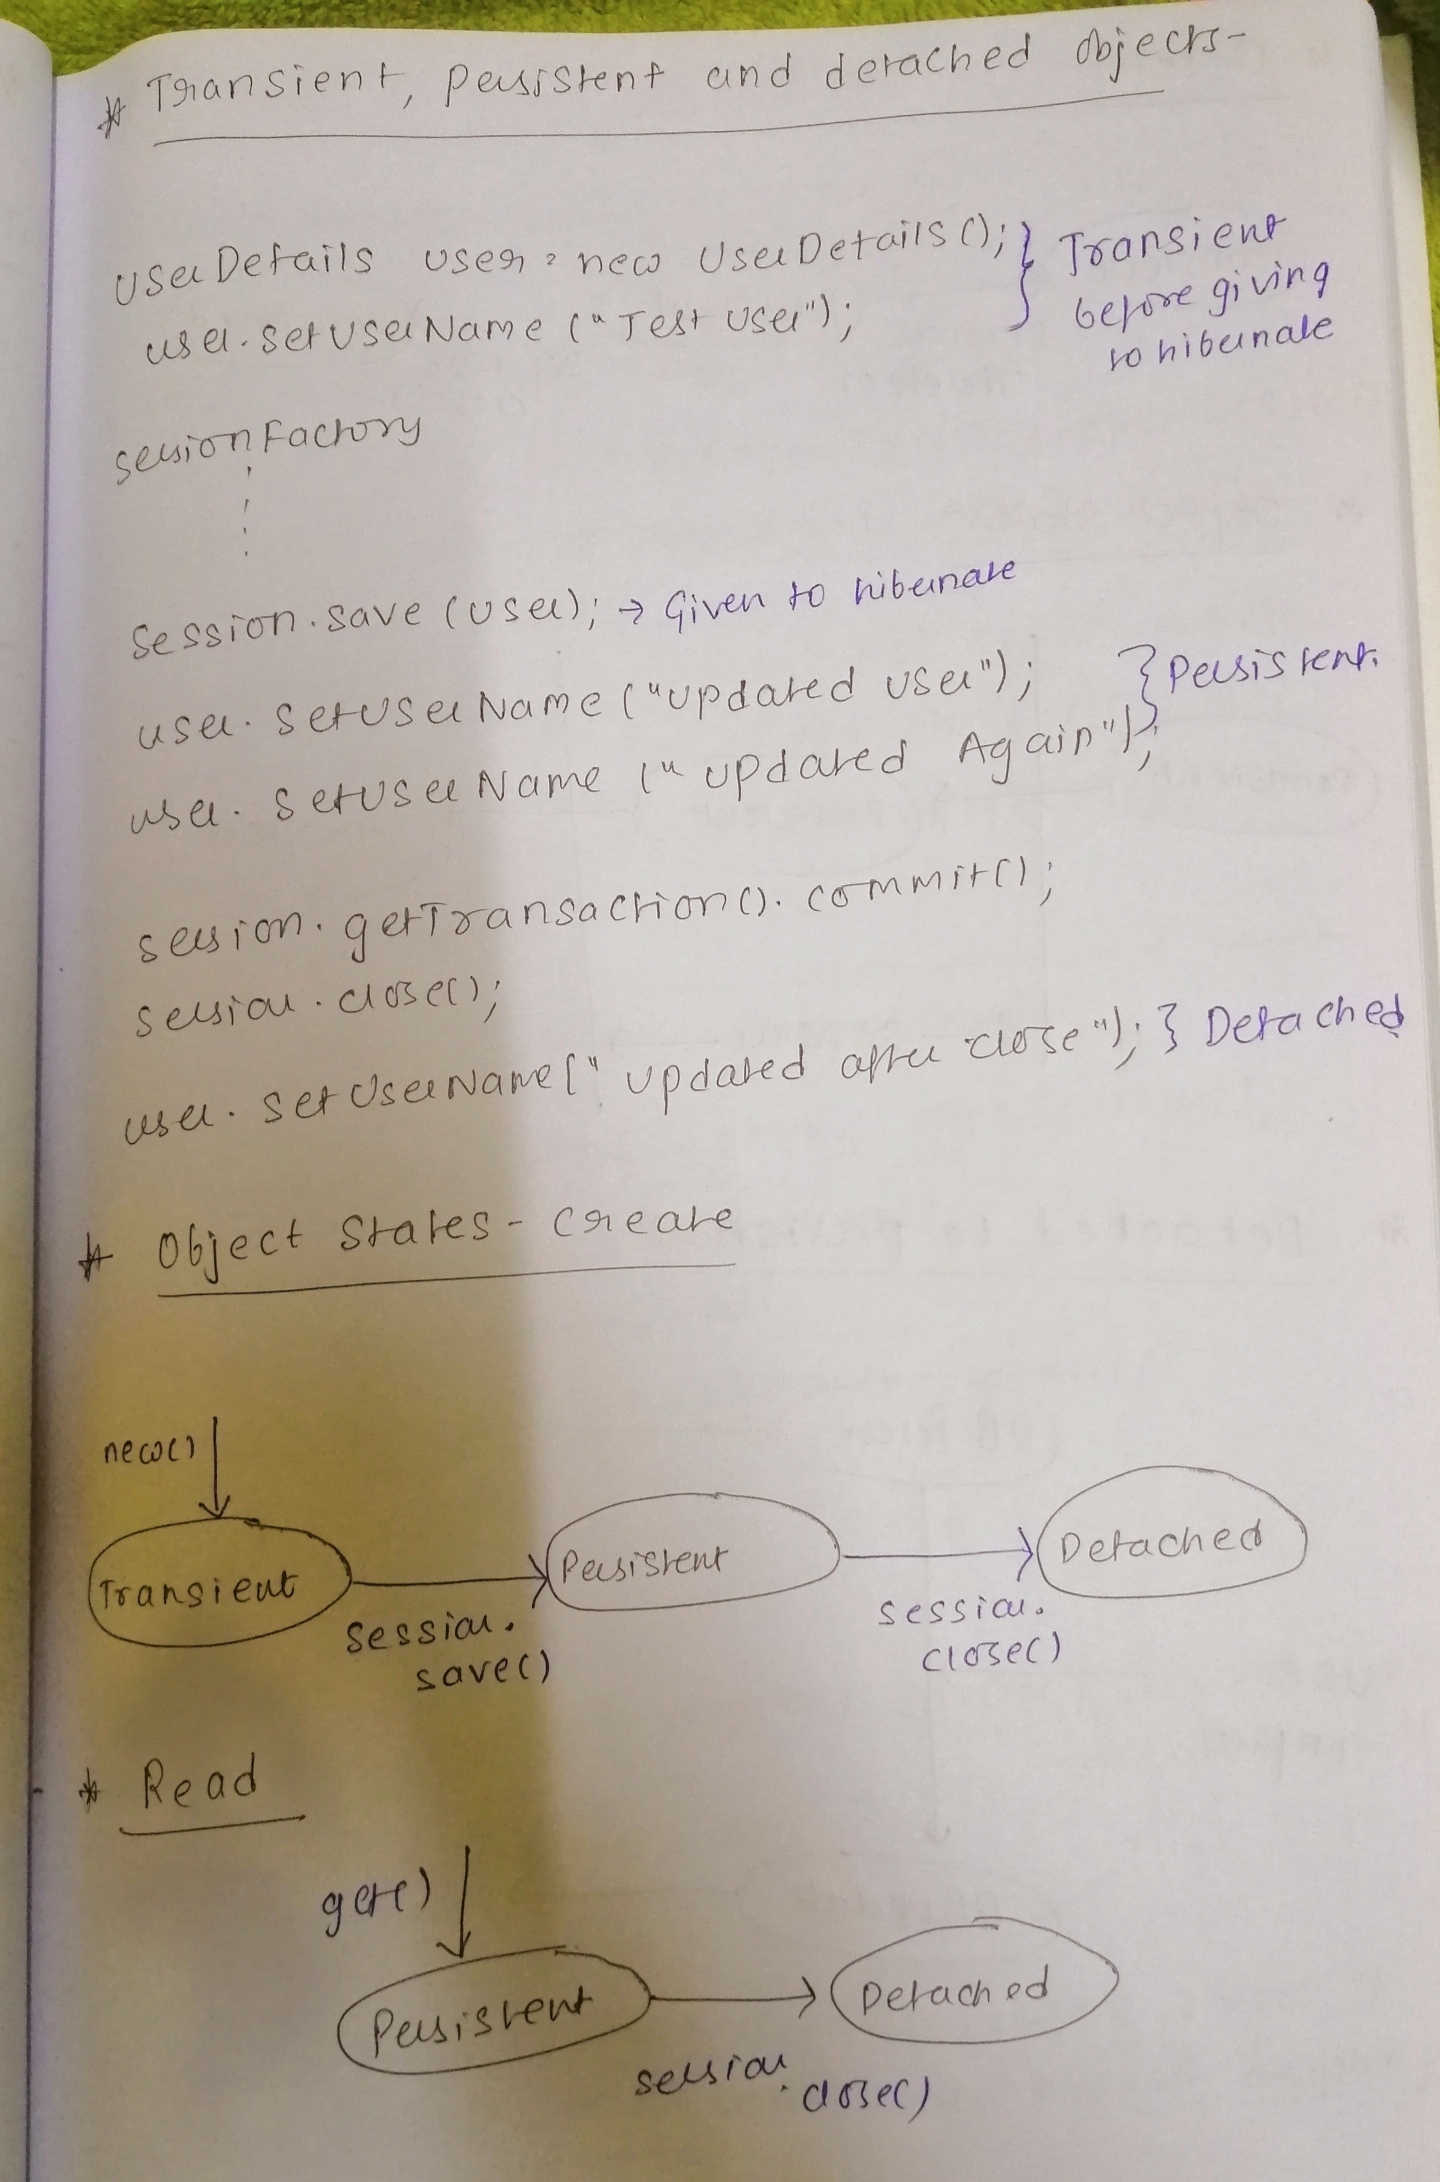 * Transient, persistent and detached objects-
UserDetails user = new UserDetails(); } Transient
before giving
to hibernate
user.setUserName ("Test User");
sessionFactory
session.save (user); → Given to hibernate
user.setUserName ("updated user"); } Persistent.
user.setUserName ("updated Again");
session.getTransaction().commit();
session.close();
user.setUserName(" updated after close"); } Detached
* Object States - create
new()
Transient
Persistent
Detached
session.
save()
session.
close()
* Read
get()
Persistent
Detached
session
.close()